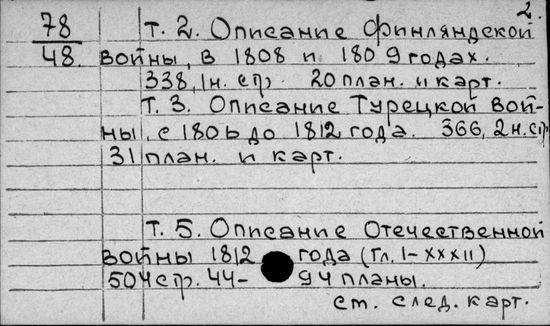 2.
78
48.
т. 2. Описание Финляндской
войны, в 1808 и 1809 годах.
338, 1н. стр. 20 план. и карт.
Т. 3. Описание Турецкой вой-
ны, с 1806 до 1812 года. 366, 2 н. стр
31 план. и карт.
т. 5. Описание Отечественной
войны 1812 года (Гл. I-XXXII)
504 стр. 44-94 планы.
см. след. карт.